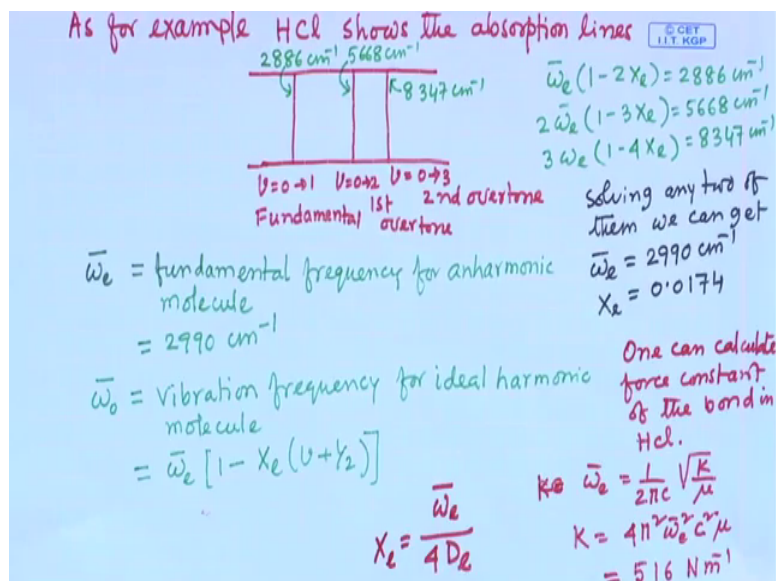 As for example HCl shows the absorption lines
© CET
I.I.T. KGP
2886 cm⁻¹ 5668 cm⁻¹
8347 cm⁻¹
υ=0→1 υ=0→2 υ=0→3
Fundamental 1st overtone 2nd overtone
ω̄e (1-2xe) = 2886 cm⁻¹
2ω̄e (1-3xe) = 5668 cm⁻¹
3ωe (1-4xe) = 8347 cm⁻¹
solving any two of
them we can get
ω̄e = 2990 cm⁻¹
xe = 0.0174
ω̄e = fundamental frequency for anharmonic
molecule
= 2990 cm⁻¹
ω̄o = vibration frequency for ideal harmonic
molecule
= ω̄e [1 - xe (υ + 1/2)]
xe = ω̄e / 4De
One can calculate
force constant
of the bond in
HCl.
ω̄e = 1/2πc √K/μ
K = 4π²ω̄e²c²μ
= 516 Nm⁻¹